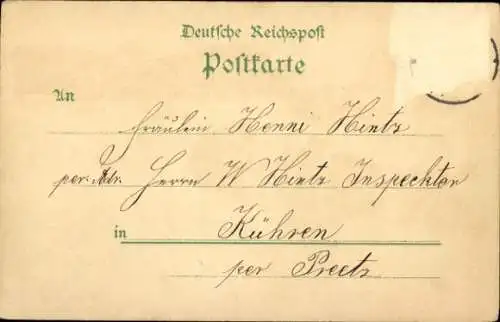 Deutsche Reichspost
Postkarte
An
Fräulein Henni Hintz
per. Adr. Herrn W Hintz Inspecktor
in Kühren
per Preetz